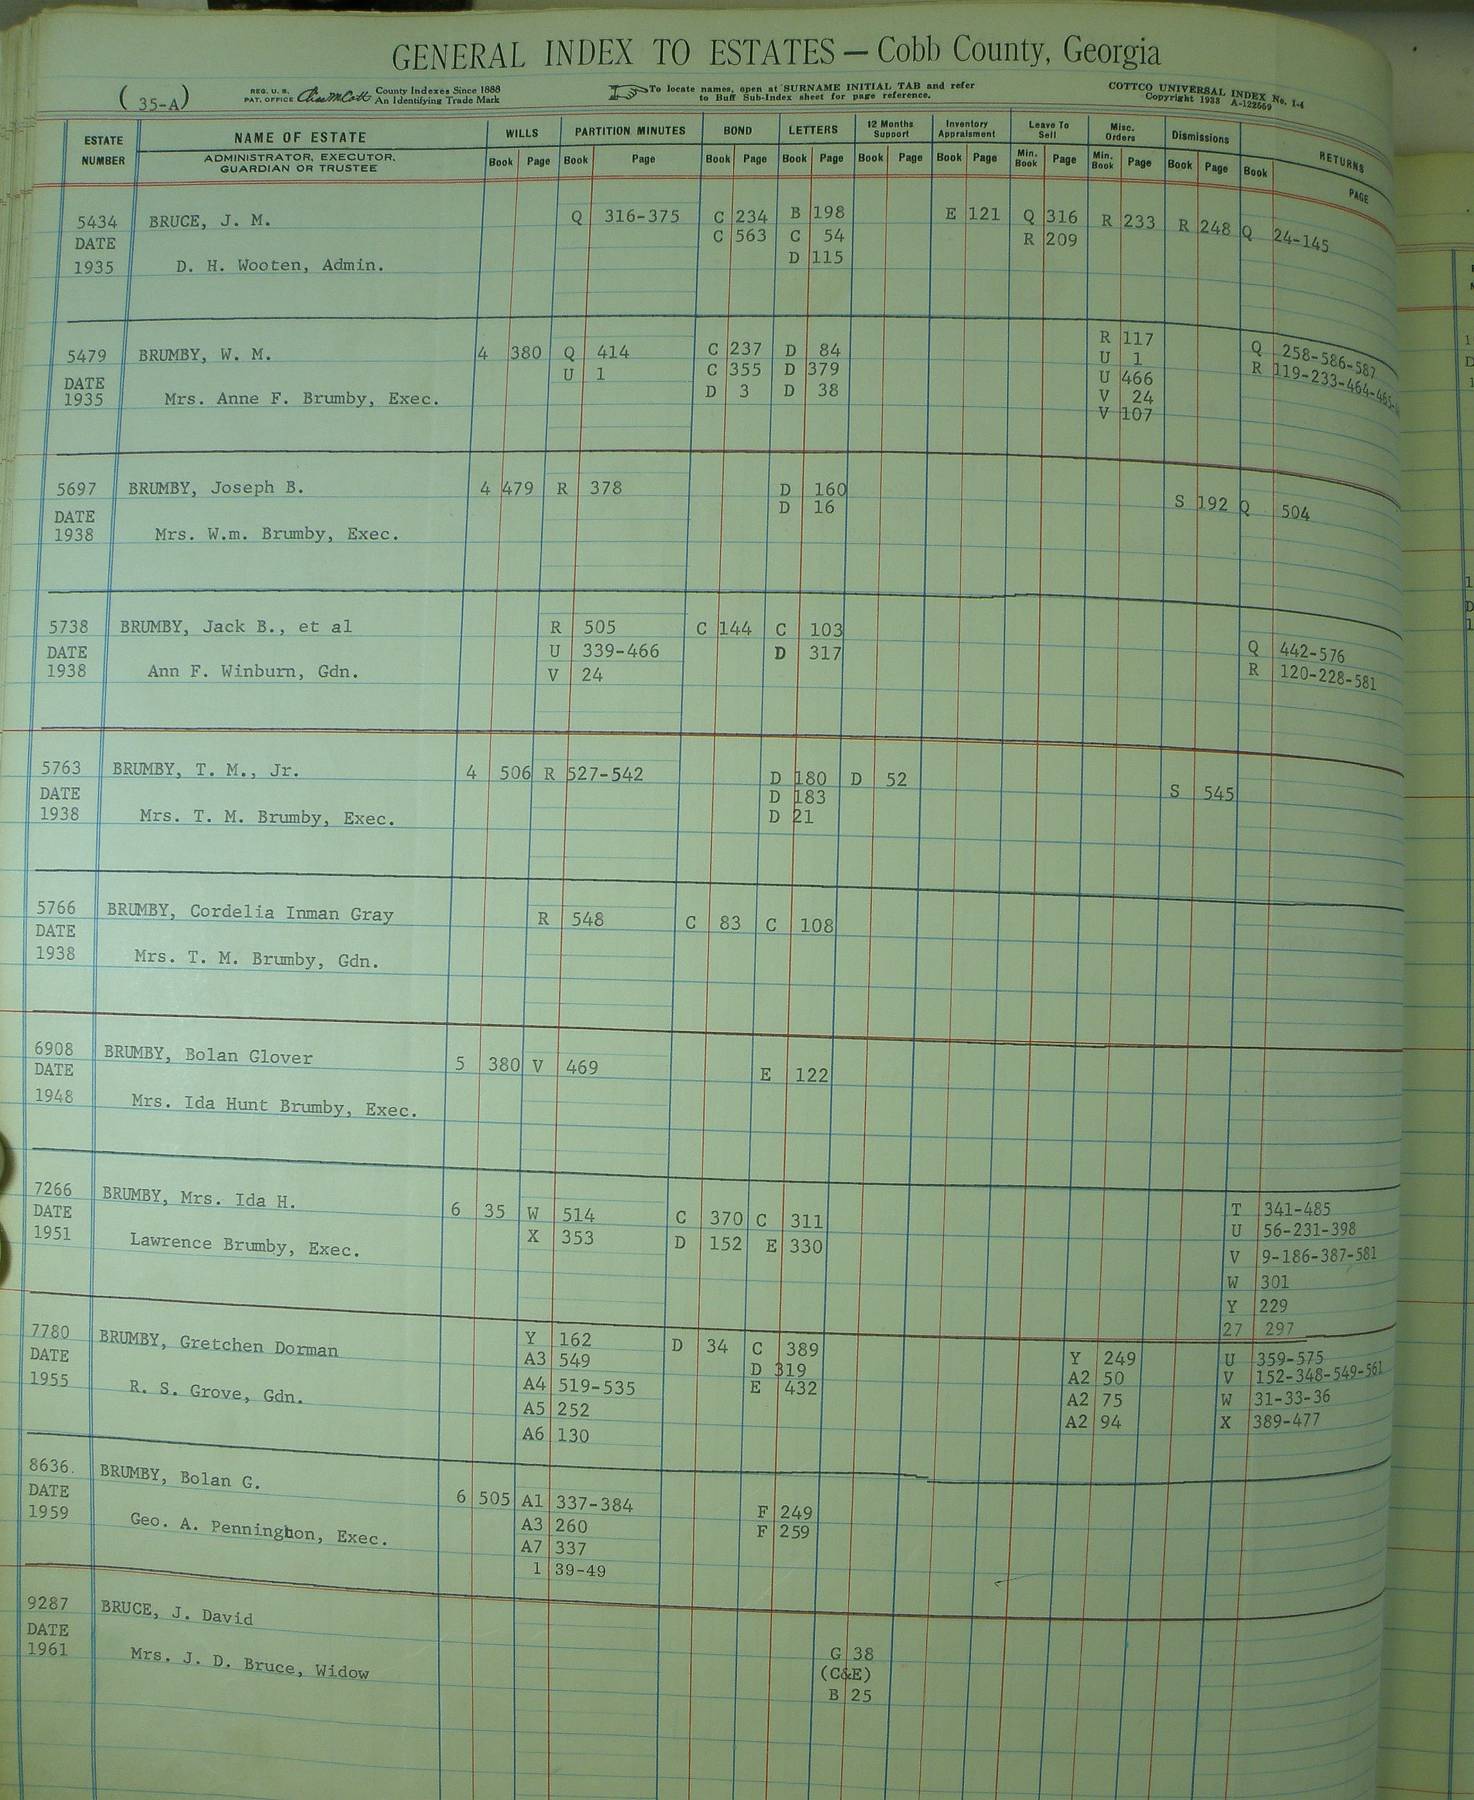 GENERAL INDEX TO ESTATES — Cobb County, Georgia
( 35-A )
REG. U. S. PAT. OFFICE County Indexes Since 1888 An Identifying Trade Mark
To locate names, open at SURNAME INITIAL TAB and refer to Buff Sub-Index sheet for page reference.
COTTCO UNIVERSAL INDEX No. 1-4
Copyright 1933 A-122569
ESTATE NUMBER NAME OF ESTATE WILLS PARTITION MINUTES BOND LETTERS 12 Months Support Inventory Appraisment Leave To Sell Misc. Orders Dismissions RETURNS
ADMINISTRATOR, EXECUTOR, GUARDIAN OR TRUSTEE Book Page Book Page Book Page Book Page Book Page Book Page Min. Book Page Min. Book Page Book Page Book PAGE
5434 BRUCE, J. M. Q 316-375 C 234 B 198 E 121 Q 316 R 233 R 248 Q 24-145
DATE C 563 C 54 R 209
1935 D. H. Wooten, Admin. D 115
5479 BRUMBY, W. M. 4 380 Q 414 C 237 D 84 R 117 Q 258-586-587
DATE U 1 C 355 D 379 U 1 R 119-233-464-465-
1935 Mrs. Anne F. Brumby, Exec. D 3 D 38 U 466
V 24
V 107
5697 BRUMBY, Joseph B. 4 479 R 378 D 160 S 192 Q 504
DATE D 16
1938 Mrs. W.m. Brumby, Exec.
5738 BRUMBY, Jack B., et al R 505 C 144 C 103 Q 442-576
DATE U 339-466 D 317 R 120-228-581
1938 Ann F. Winburn, Gdn. V 24
5763 BRUMBY, T. M., Jr. 4 506 R 527-542 D 180 D 52 S 545
DATE D 183
1938 Mrs. T. M. Brumby, Exec. D 21
5766 BRUMBY, Cordelia Inman Gray R 548 C 83 C 108
DATE
1938 Mrs. T. M. Brumby, Gdn.
6908 BRUMBY, Bolan Glover 5 380 V 469 E 122
DATE
1948 Mrs. Ida Hunt Brumby, Exec.
7266 BRUMBY, Mrs. Ida H. 6 35 W 514 C 370 C 311 T 341-485
DATE X 353 D 152 E 330 U 56-231-398
1951 Lawrence Brumby, Exec. V 9-186-387-581
W 301
Y 229
27 297
7780 BRUMBY, Gretchen Dorman Y 162 D 34 C 389 Y 249 U 359-575
DATE A3 549 D 319 A2 50 V 152-348-549-561
1955 R. S. Grove, Gdn. A4 519-535 E 432 A2 75 W 31-33-36
A5 252 A2 94 X 389-477
A6 130
8636. BRUMBY, Bolan G. 6 505 A1 337-384 F 249
DATE A3 260 F 259
1959 Geo. A. Penninghon, Exec. A7 337
1 39-49
9287 BRUCE, J. David
DATE G 38
1961 Mrs. J. D. Bruce, Widow (C&E)
B 25